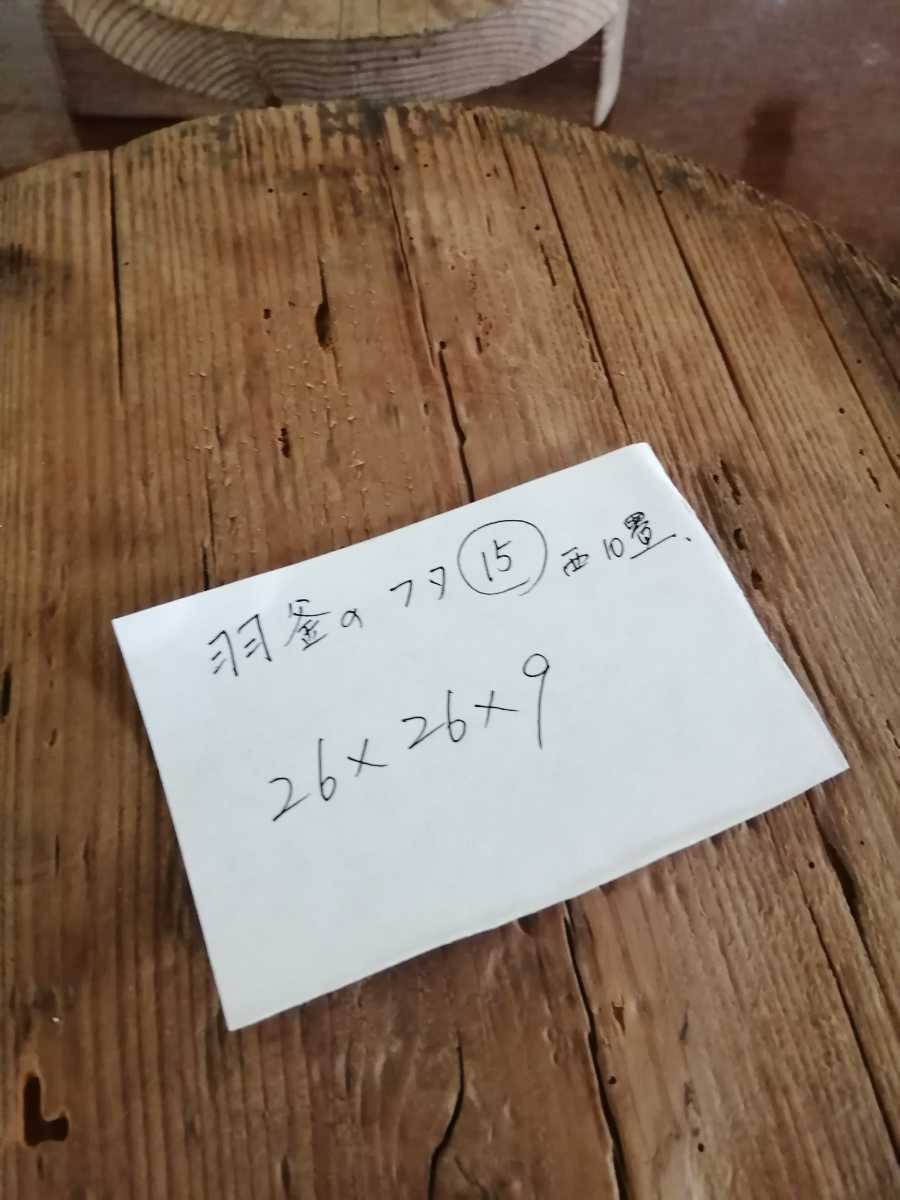 羽釜の フタ ⑮ 西10畳、
26×26×9